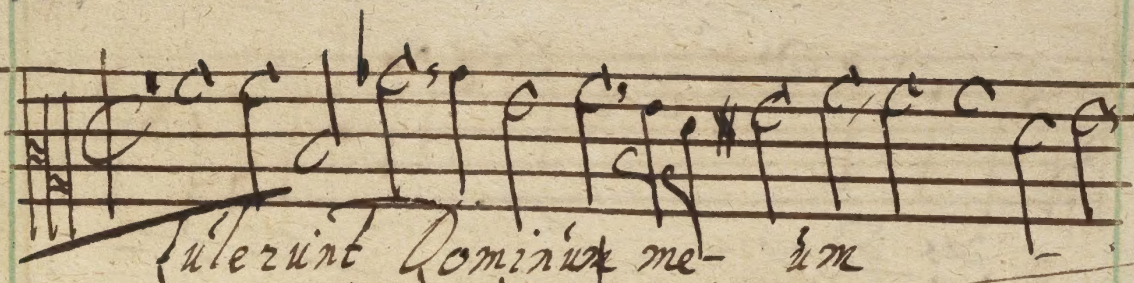 Tulerunt Dominum me- um -